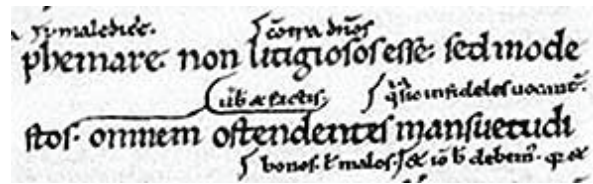 maledic̄e. ɔ̄tra dn̄os
phemare. non litigiosos esse: sed mode
ub̄ & factis. infideles uocant̄
stos. omnem ostendentes mansuetudi
bonos. malos. & debem̄. &